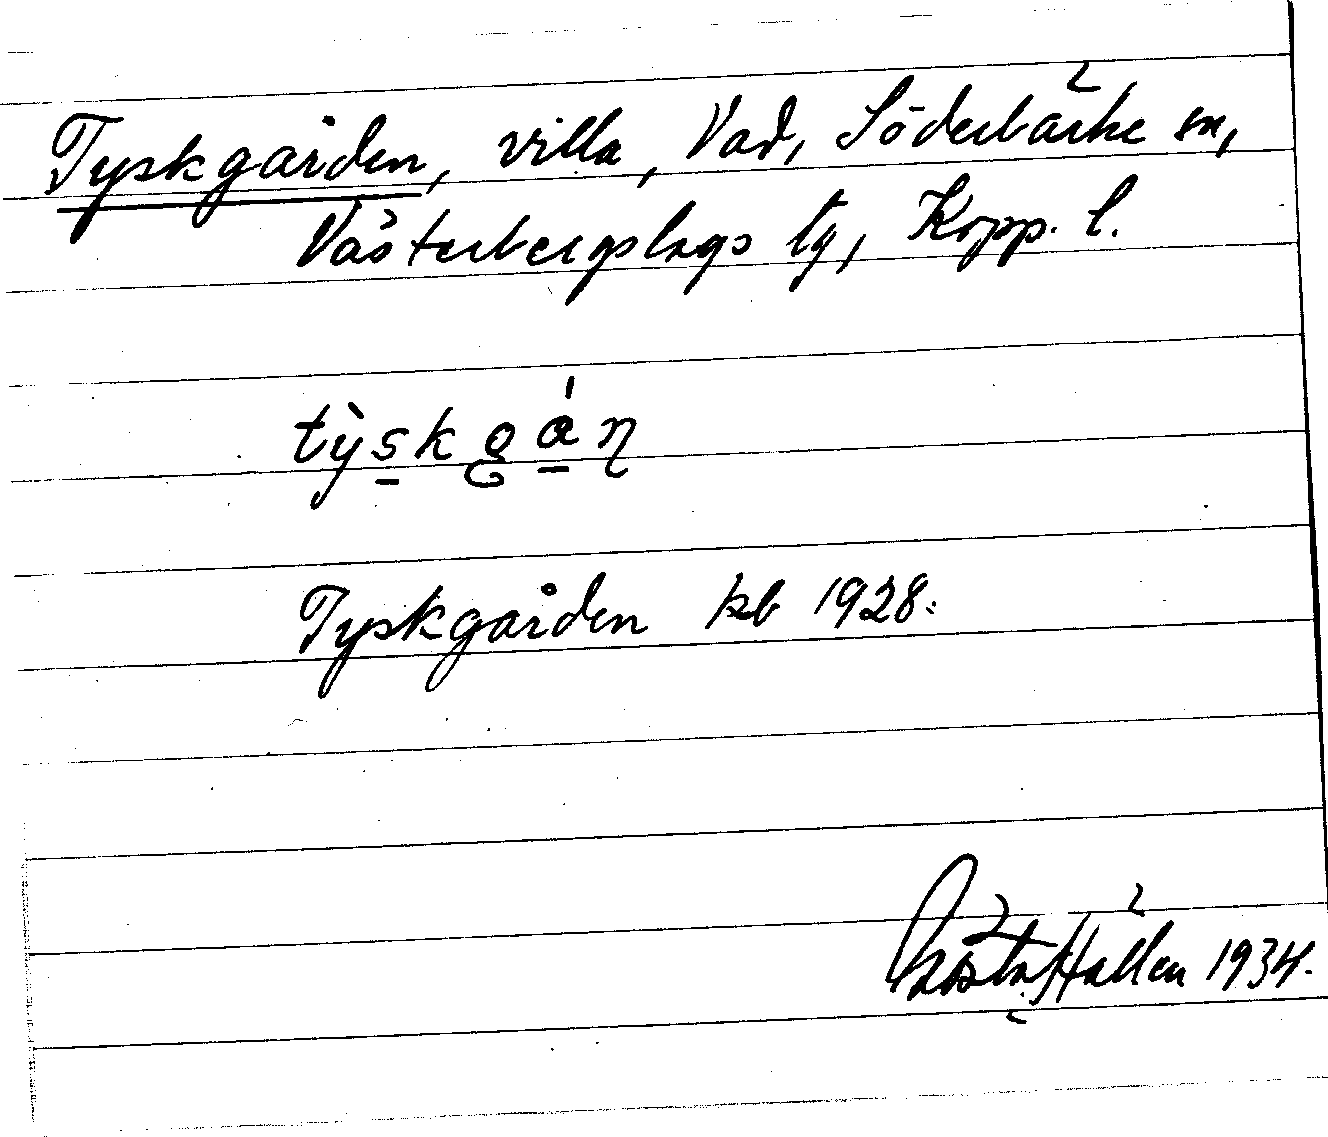 Tyskgården, villa, Vad, Söderbärke sn,
Västerbergslags tg, Kopp. l.
tỳskgán
Tyskgården kb 1928.
Gösta Hallén 1934.